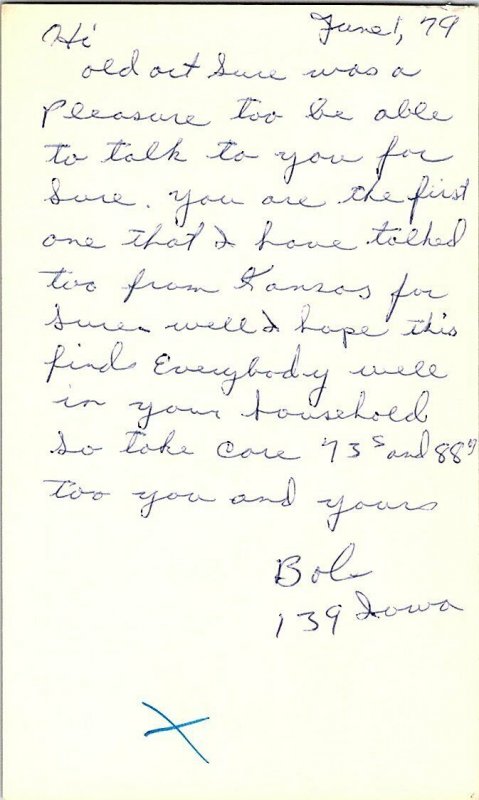 June 1, 79
Hi
old art Sure was a
pleasure too be able
to talk to you for
Sure. you are the first
one that I have talked
too from Kansas for
Sure. well I hope this
finds Everybody well
in your household
So take care 73s and 88s
too you and yours
Bob
139 Iowa
X